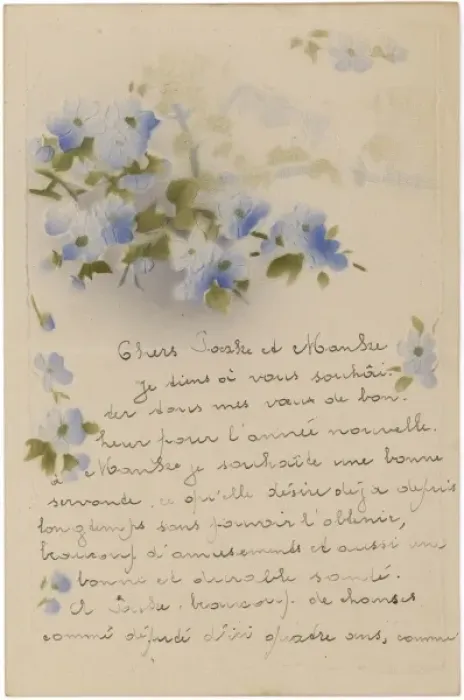 Chers Parke et Manke
Je tiens à vous souhai-
ter tous mes vœux de bon-
heur pour l'année nouvelle.
à Manke je souhaite une bonne
servante, ce qu'elle désire déja depuis
longtemps sans pouvoir l'obtenir,
beaucoup d'amusements et aussi une
bonne et durable santé.
A beaucoup de chanses
comme député d'ici quatre ans, comme